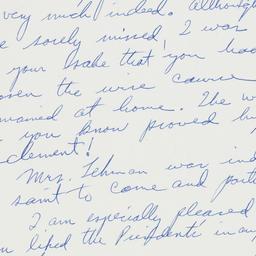 very much indeed. Although
sorely missed, I was
your sake that you had
the wise course
remained at home. The w
you know proved
clement!
Mrs. Lehman was ind
saint to come and
I am especially pleased
liked the President's inaug